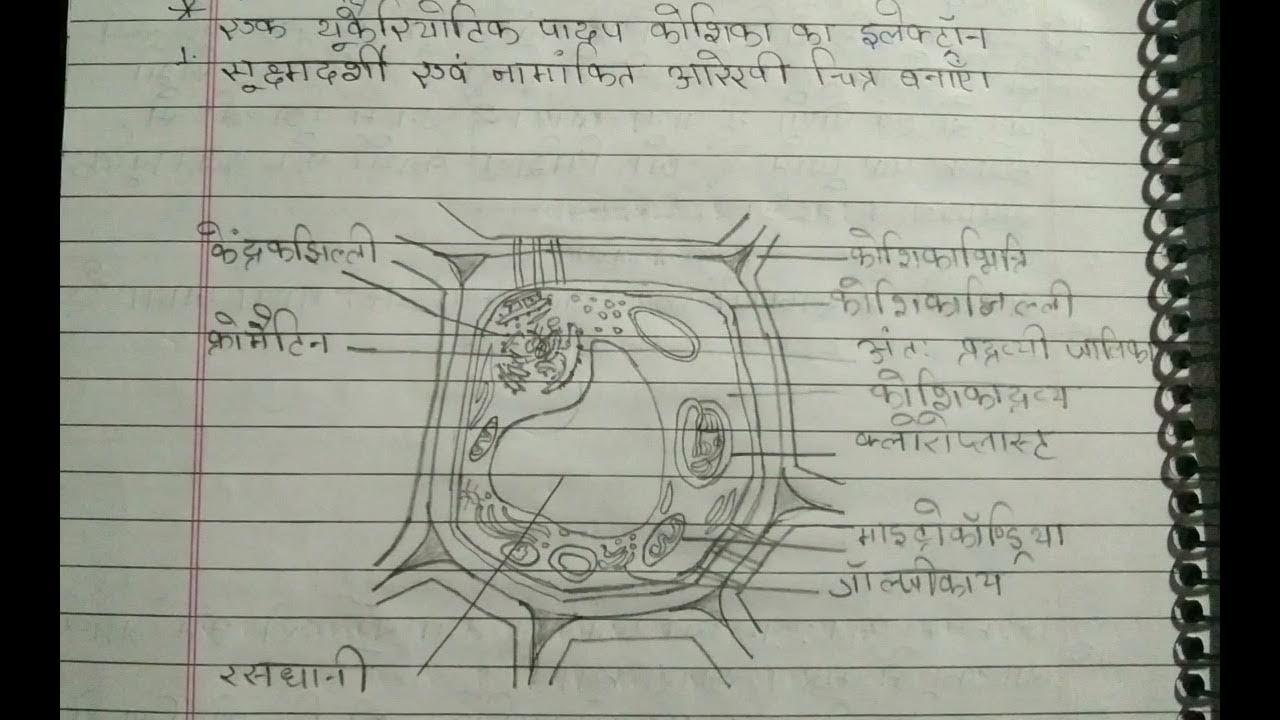 * एक यूकैरियोटिक पादप कोशिका का इलेक्ट्रॉन
1. सूक्ष्मदर्शी एवं नामांकित आरेखी चित्र बनाएँ।
केंद्रकझिल्ली
क्रोमैटिन
कोशिकाभित्ति
कोशिकाझिल्ली
अंतः प्रद्रव्यी जालिका
कोशिकाद्रव्य
क्लोरोप्लास्ट
माइटोकॉण्ड्रिया
गॉल्जीकाय
रसधानी